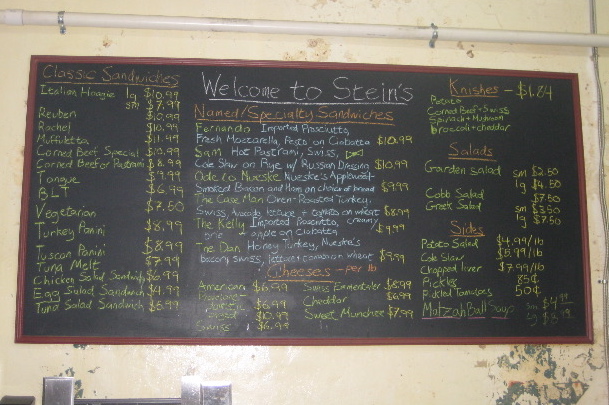 Classic Sandwiches
Italian Hoagie lg $10.99
sm $7.99
Reuben $10.99
Rachel $10.99
Muffuletta $11.99
Corned Beef Special $10.99
Corned Beef or Pastrami $8.99
Tongue $9.99
BLT $6.99
Vegetarian $7.50
Turkey Panini $8.99
Tuscan Panini $8.99
Tuna Melt $7.99
Chicken Salad Sandwich $6.99
Egg Salad Sandwich $4.99
Tuna Salad Sandwich $5.99
Welcome to Stein's
Named/Specialty Sandwiches
Fernando Imported Prosciutto,
Fresh Mozzarella, Pesto on Ciabatta $10.99
Sam Hot Pastrami, Swiss,
Cole Slaw on Rye w/ Russian Dressing $10.99
Ode to Nueske Nueske's Applewood-
Smoked Bacon and Ham on choice of bread $9.99
The Cave Man Oven-Roasted Turkey,
Swiss, Avocado, lettuce + tomato on wheat $8.99
The Kelly Imported Prosciutto, creamy
brie + apple on ciabatta $9.99
The Dan Honey Turkey, Nueske's
bacon, swiss, lettuce + on wheat $9.99
Cheeses - per lb
American $6.99
$6.99
$10.99
Swiss $6.99
Swiss Emmentaler $8.99
Cheddar $6.99
Sweet Munchee $7.99
Knishes - $1.84
Potato
Corned Beef + Swiss
Spinach + Mushroom
broccoli + cheddar
Salads
Garden Salad sm $2.50
lg $4.50
Cobb Salad $7.50
Greek Salad sm $3.50
lg $7.50
Sides
Potato Salad $4.99/lb
Cole Slaw $8.99/lb
Chopped liver $7.99/lb
Pickles 85¢
Pickled Tomatoes 50¢
Matzah Ball Soup sm $4.99
lg